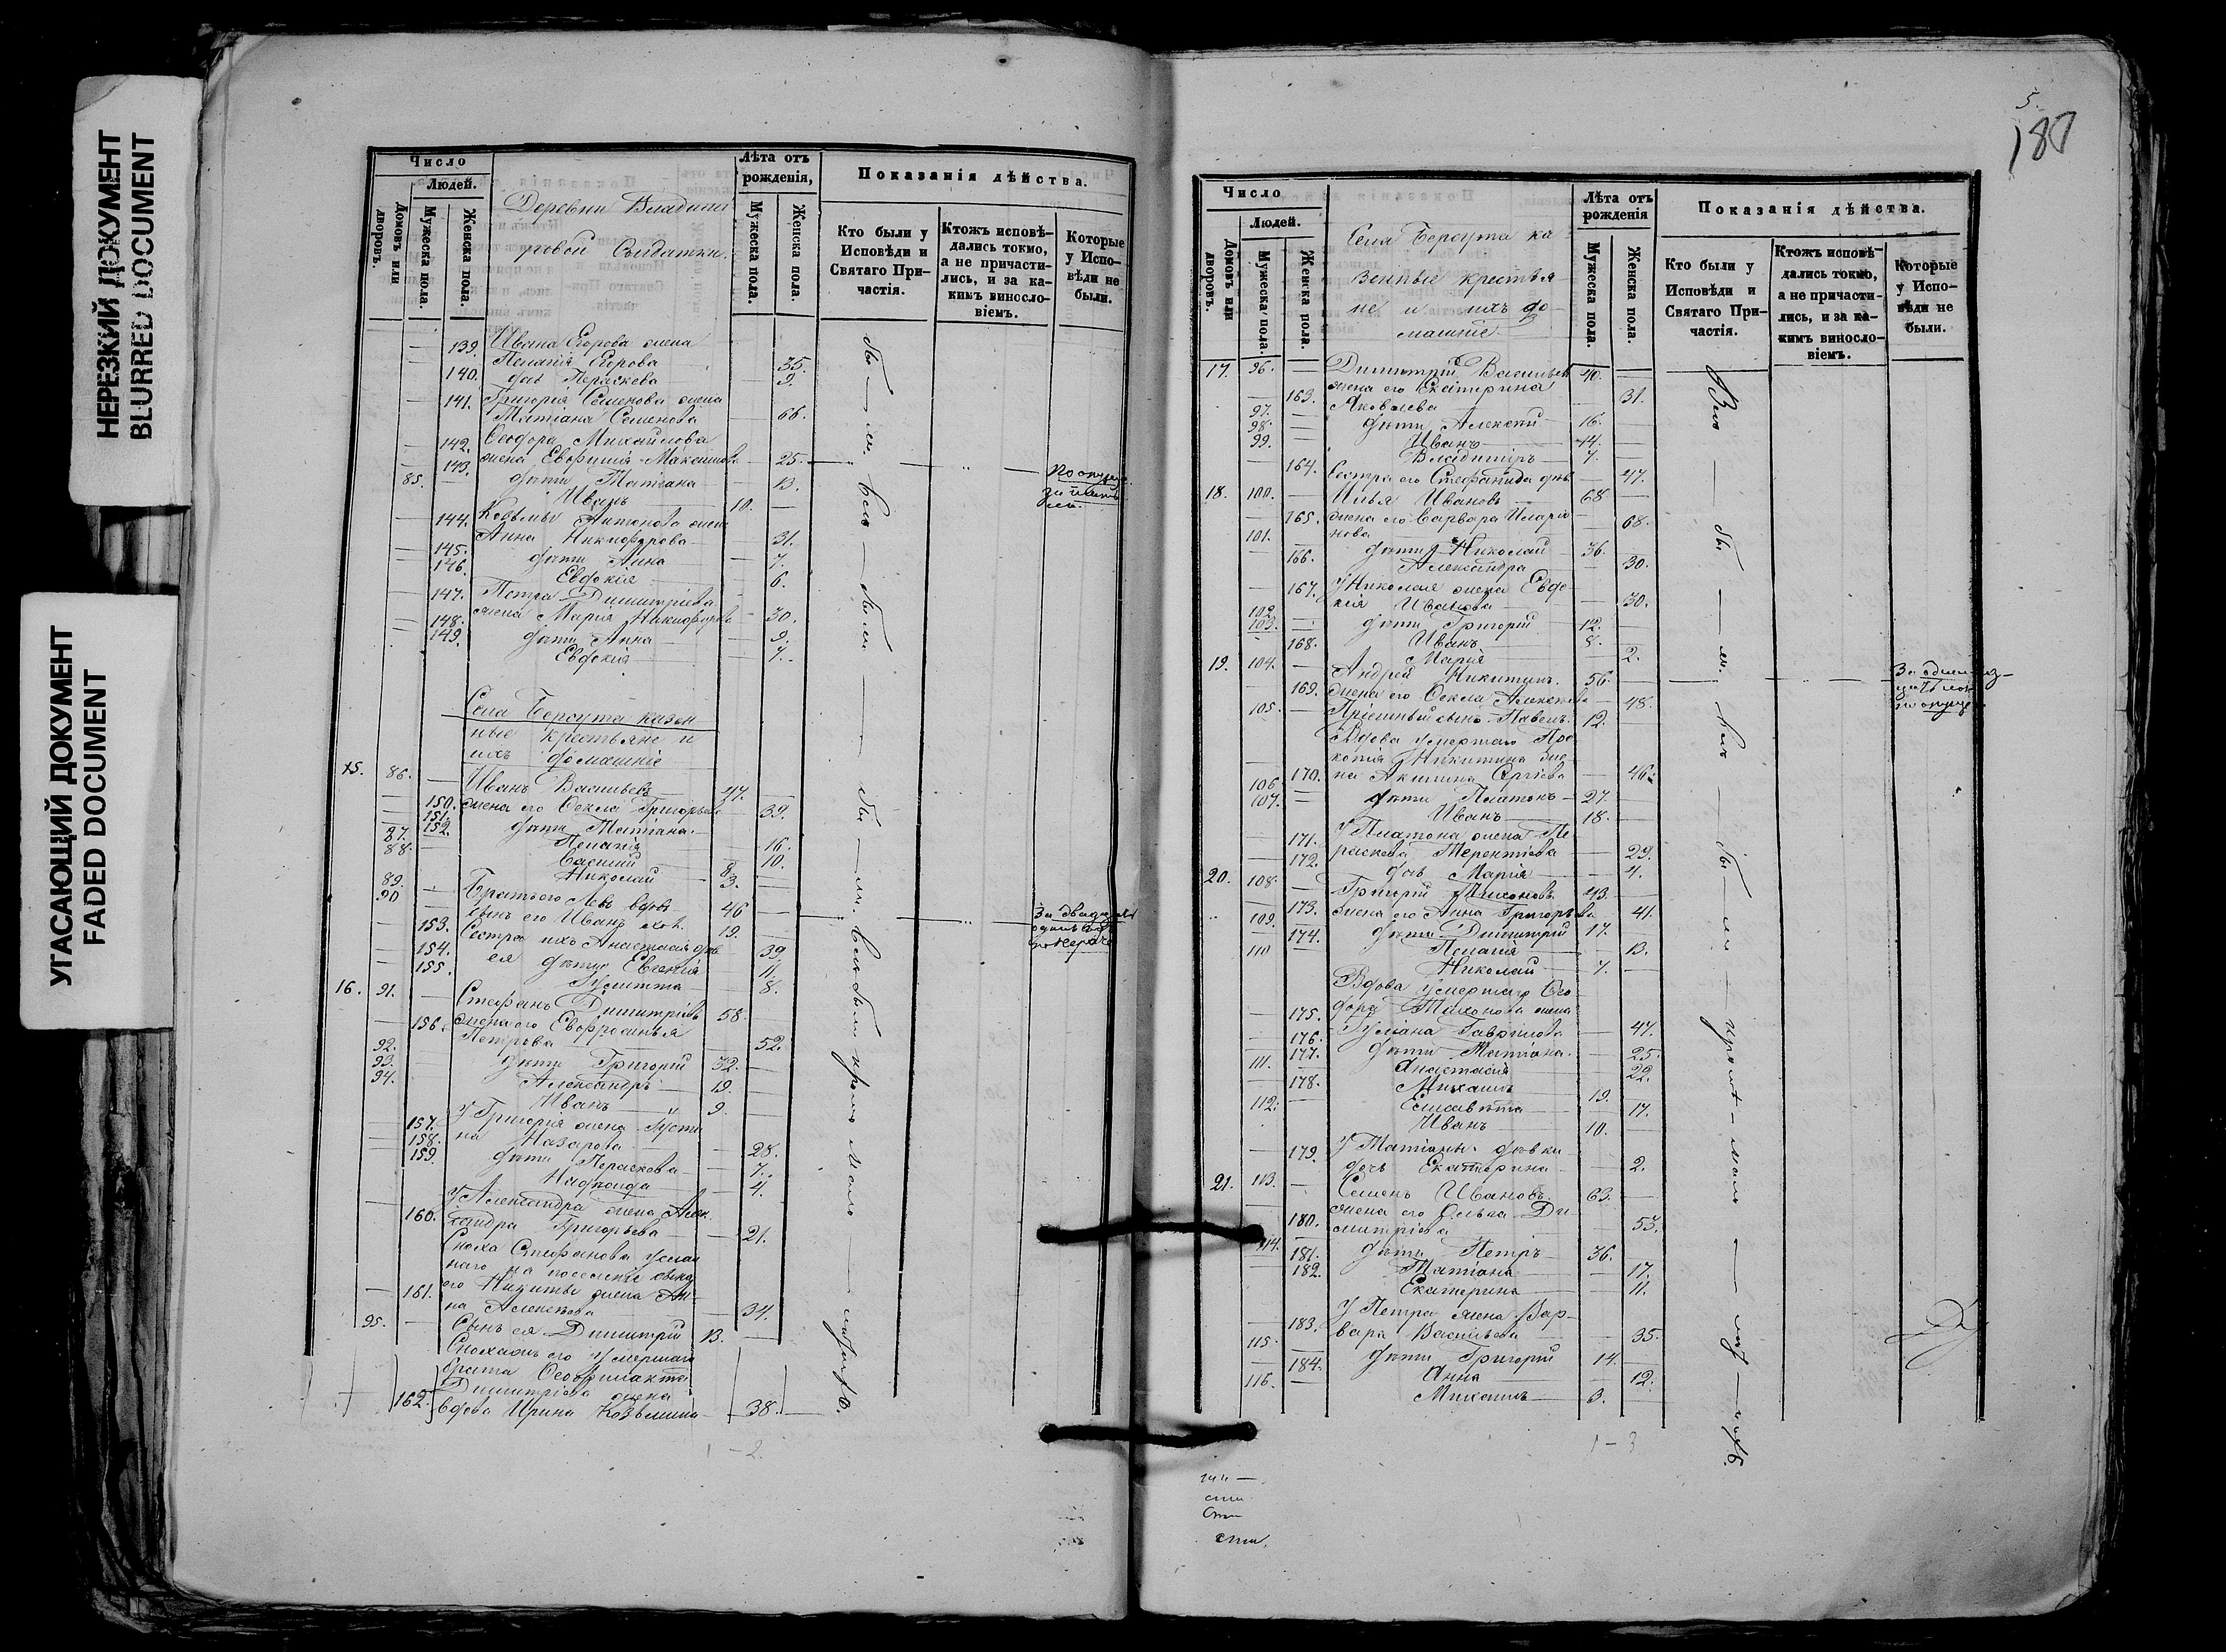 НЕРЕЗКИЙ ДОКУМЕНТ
BLURRED DOCUMENT
УГАСАЮЩИЙ ДОКУМЕНТ
FADED DOCUMENT
Число
Людей.
Домовъ или дворовъ.
Мужеска пола.
Женска пола.
Деревни Владими
ровой Солдатки.
Лѣта отъ рожденія,
Мужеска пола.
Женска пола.
Показанія дѣйства.
Кто были у Исповѣди и Святаго Причастія.
Ктожъ исповѣдались токмо, а не причастились, и за какимъ винословіемъ.
Которые у Исповѣди не были.
139. Ивана Егорова жена
Пелагія Егорова 35.
140. дочь Параскева 9.
141. Григорія Семенова жена
Матіана Семенова 66.
Ѳеодора Михайлова
142. жена Евфимія Максимова 25.
143. дѣти Татіана 13.
85. Иванъ 10.
Козьмы Антонова жена
144. Анна Никифорова 31.
145. дѣти Анна 7.
146. Евдокія 6.
Петра Димитріева
147. жена Марія Никифорова 30.
148. дѣти Анна 9.
149. Евдокія 7.
Села Берсута казен
ные крестьяне и
ихъ домашніе
15. 86. Иванъ Васильевъ 47.
150. жена его Ѳекла Григорьева 39.
151. дѣти Татіана
152. Пелагія 16.
87. Василий 10. 8
88. Николай 3.
89. Братъ его Левъ вдовъ 46
90 сынъ его Иванъ хол. 19.
153. Сестра ихъ Анастасія дѣв 39
154. ея дѣти Евгенія 11.
155. Іулитта 8.
16. 91. Стефанъ Димитріевъ 58.
156. жена его Евфросинья
Петрова 52.
92. дѣти Григорій 32.
93. Александръ 19.
94. Иванъ 9.
157. У Григорія жена Іусти
на Назарова 28.
158. дѣти Параскева 7.
159. Надежда 4.
У Александра жена Алек
160. сандра Григорьева 21.
Сноха Стефанова услан
наго на поселеніе сына
его Никиты жена Ан
161. на Алексѣева 34.
95. Сынъ ея Димитрій 13.
его умершаго
брата Ѳеофилакта
Димитріева жена
162. вдова Ирина Козьмина 38.
1-2
5.
187
Число
Людей.
Домовъ или дворовъ.
Мужеска пола.
Женска пола.
Села Берсута ка
зенные крестья
не и ихъ до
машніе
Лѣта отъ рожденія
Мужеска пола.
Женска пола.
Показанія дѣйства.
Кто были у Исповѣди и Святаго Причастія.
Ктожъ исповѣдались токмо, а не причастились, и за какимъ винословіемъ.
Которые у Исповѣди не были.
17. 96. Димитрій Васильевъ 40.
жена его Екатерина
163. Яковлева 31.
97. дѣти Алексѣй 16.
98. Иванъ 14.
99. Владимиръ 7.
164. Сестра его Стефанида дѣв. 47.
18. 100. Илья Ивановъ 68
165. жена его Варвара Иларіо
нова 68.
101. дѣти Николай 36.
166. Александра 30.
167. У Николая жена Евдо
кія Иванова 30.
102. дѣти Григорій 12.
103. Иванъ 8.
168. Марія 2.
19. 104. Андрей Никитинъ 56.
169. жена его Ѳекла Алексѣева 48.
105. Пріемный сынъ Павелъ 12.
Вдова умершаго Про
копія Никитина же
170. на Акилина Сергіева 46.
106. дѣти Платонъ 27.
107. Иванъ 18.
У Платона жена Па
171. раскева Терентіева 29.
172. дочь Марія 4.
20. 108. Григорій Тихоновъ 43.
173. жена его Анна Григорьева 41.
109. дѣти Димитрій 17.
174. Пелагія 13.
110 Николай 7.
Вдова умершаго Ѳео
дора Тихонова жена
175. Іуліана Гаврилова 47.
176. дѣти Татіана 25.
177. Анастасія 22.
111. Михаилъ 19.
178. Елисавета 17.
112. Иванъ 10.
У Татіаны дѣвки
179. дочь Екатерина 2.
21. 113. Семенъ Ивановъ 63.
жена его Ѳекла Ди
180. митріева 53.
114. дѣти Петръ 36.
181. Татіана 17.
182. Екатерина 11.
У Петра жена Вар
183. вара Васильева 35.
115. дѣти Григорій 14.
184. Анна 12.
116. Михаилъ 3.
1-3